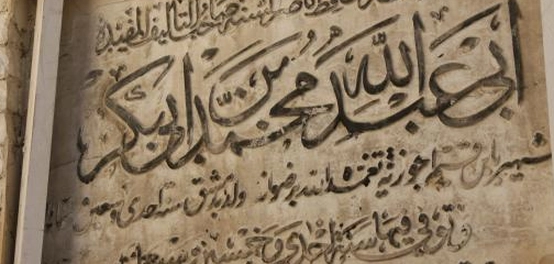 حافظ ناصر السنة صاحب التآليف المفيده
ابي عبد الله محمد بن ابي بكر
شهير بابن قيم الجوزية تغمده الله برضوانه ولد بدمشق سنة احدى وتسعين
وتوفي فيها سنة احدى وخمسين وسبعمائة